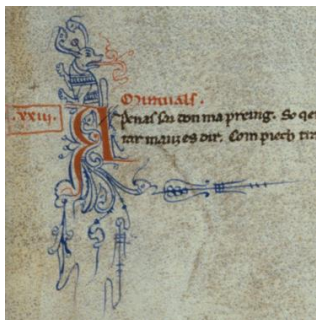 .xxiij.
Oimuals.
Apenas soi don ma preing. So qe
tar mauz es dir. Com piech tir